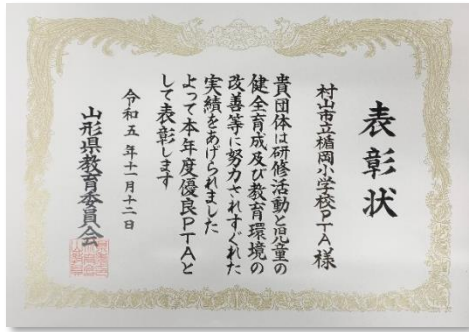 表彰状
村山市立楯岡小学校PTA 様
貴団体は研修活動と児童の
健全育成及び教育環境の
改善等に努力されすぐれた
実績をあげられました
よって本年度優良PTAと
して表彰します
令和五年十一月十二日
山形県教育委員会